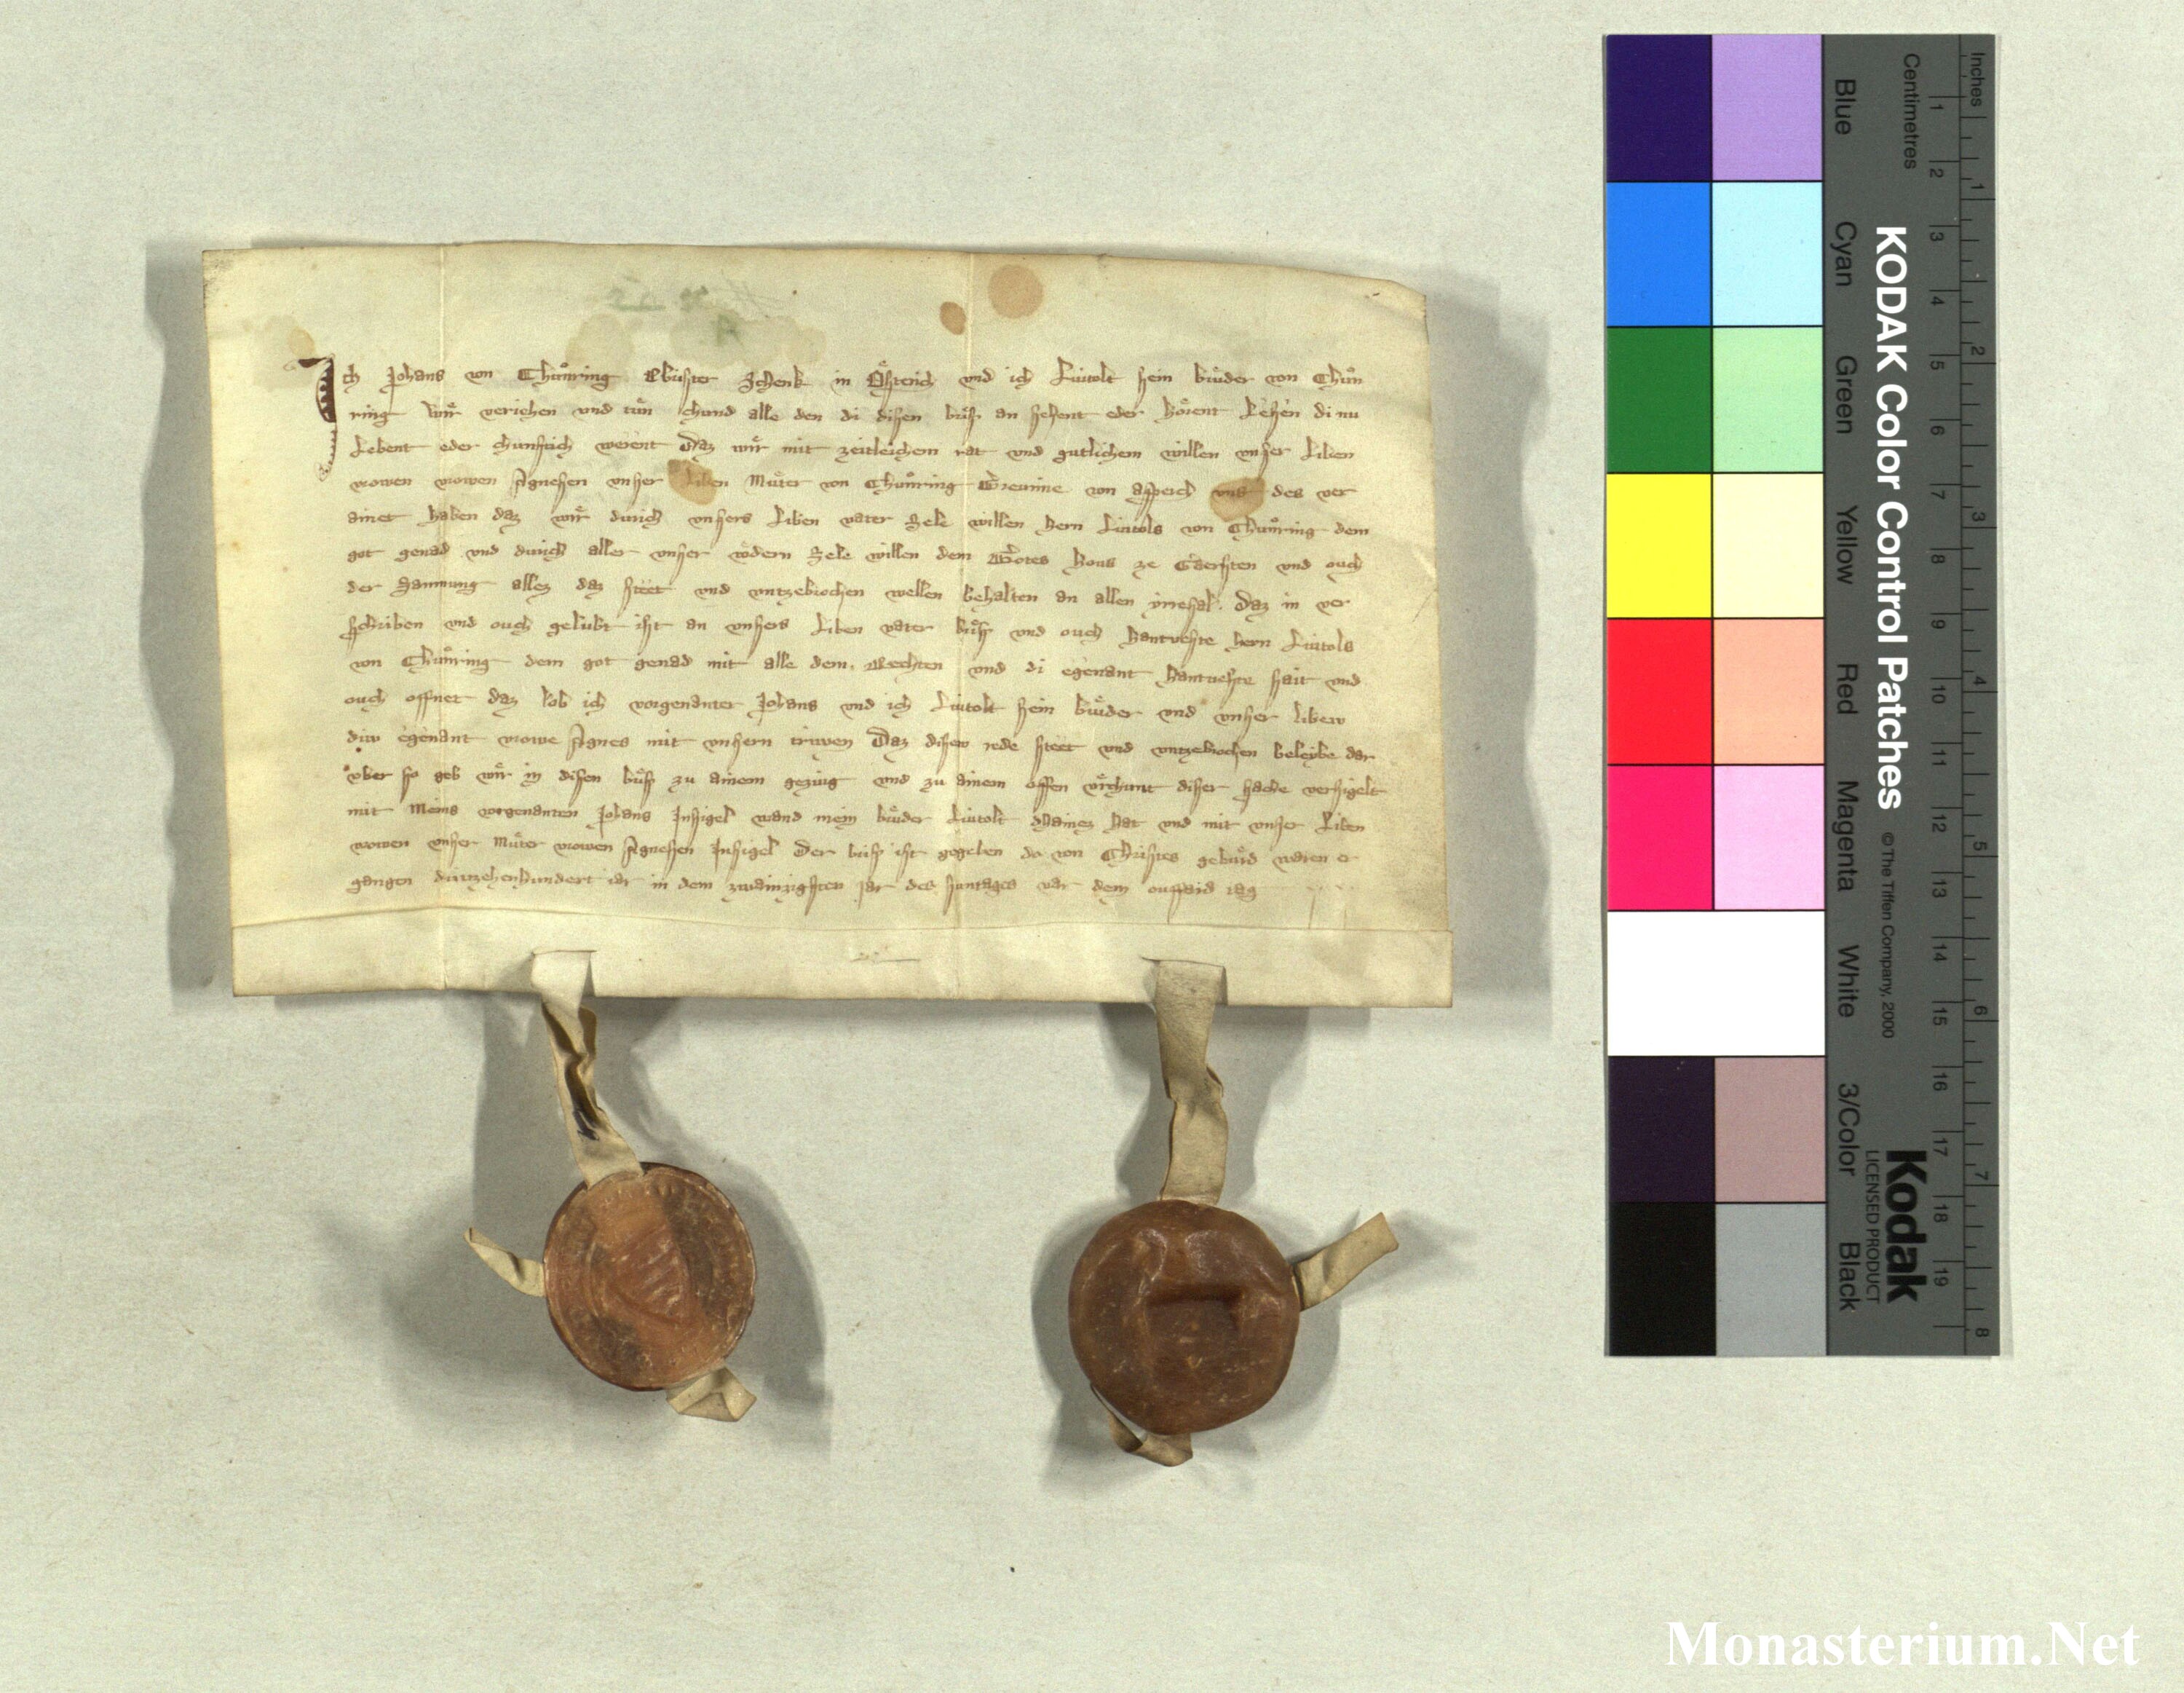 Ich Johans von Chuͦnring Obrister Schenk in Oͤsterich vnd ich Liutolt sein bruͤder von Chuͦn
ring wir veriehen vnd tuͦn chund alle den di disen brif an sehent oder hoͤrent lesen di nu
Lebent oder chunftich werent Daz wir mit zeitleichem rat vnd gutlichem willen vnser Liben
vrowen vrowen Agnesen vnser Liben Muͤter von Chuͦnring Greuinne von Asperch vns des ver
ainet haben daz wir durich vnsers Liben vater Sele willen hern Liutols von Chuͦnring dem
got genad vnd durich aller vnser voͤdern Sele willen dem Gotes hous ze und ouch
der Samnung allez daz steet vnd vntzebrochen wellen behalten an allen irresal. Daz in ver
schriben vnd ouch gelubt ist an vnsers Liben vater brif vnd ouch hantueste hern Liutols
von Chuͦnring dem got genad mit alle dem Rechten vnd di egenant hantueste sait vnd
ouch offnet daz lob ich vorgenanter Johans vnd ich Liutolt sein bruͤder vnd vnser libew
diw egenant vrowe Agnes mit vnsern triwen Daz disew rede steet vnd vntzebrochen beleybe dar
vber so geb wir in disen brif zu ainem geziug vnd zu ainem offen vrchunt diser sache versigelt
mit Meins vorgenanten Johans Insigel wand mein bruͤder Liutolt chainez hat vnd mit vnser Liben
vrowen vnser Muͤter vrowen Agnesen Insigel Der brif ist gegeben do von Christes geburd waren er
gangen driuzehenhundert iar in dem zwainzigsten iar des Suntages vor dem ouffard tag
KODAK Color Control Patches © The Tiffen Company, 2000 Kodak
LICENSED PRODUCT
Inches 1 2 3 4 5 6 7 8
Centimetres 1 2 3 4 5 6 7 8 9 10 11 12 13 14 15 16 17 18 19
Blue Cyan Green Yellow Red Magenta White 3/Color Black
Monasterium.Net